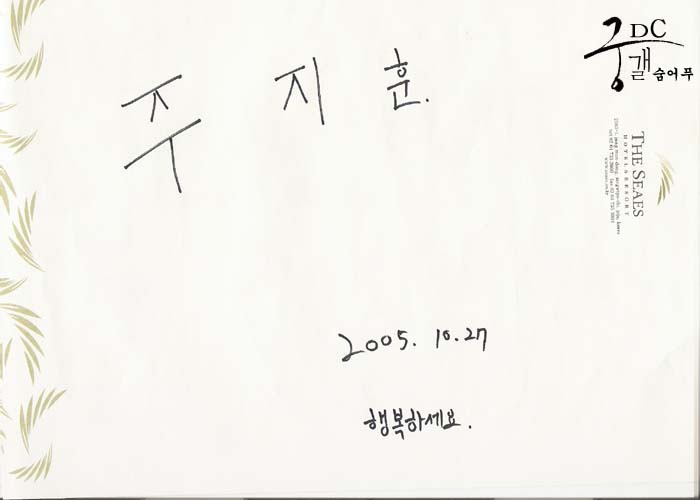 DC
궁갤
숨어푸
주지훈.
THE SEAES
HOTEL & RESORT
2005. 10. 27
행복하세요.